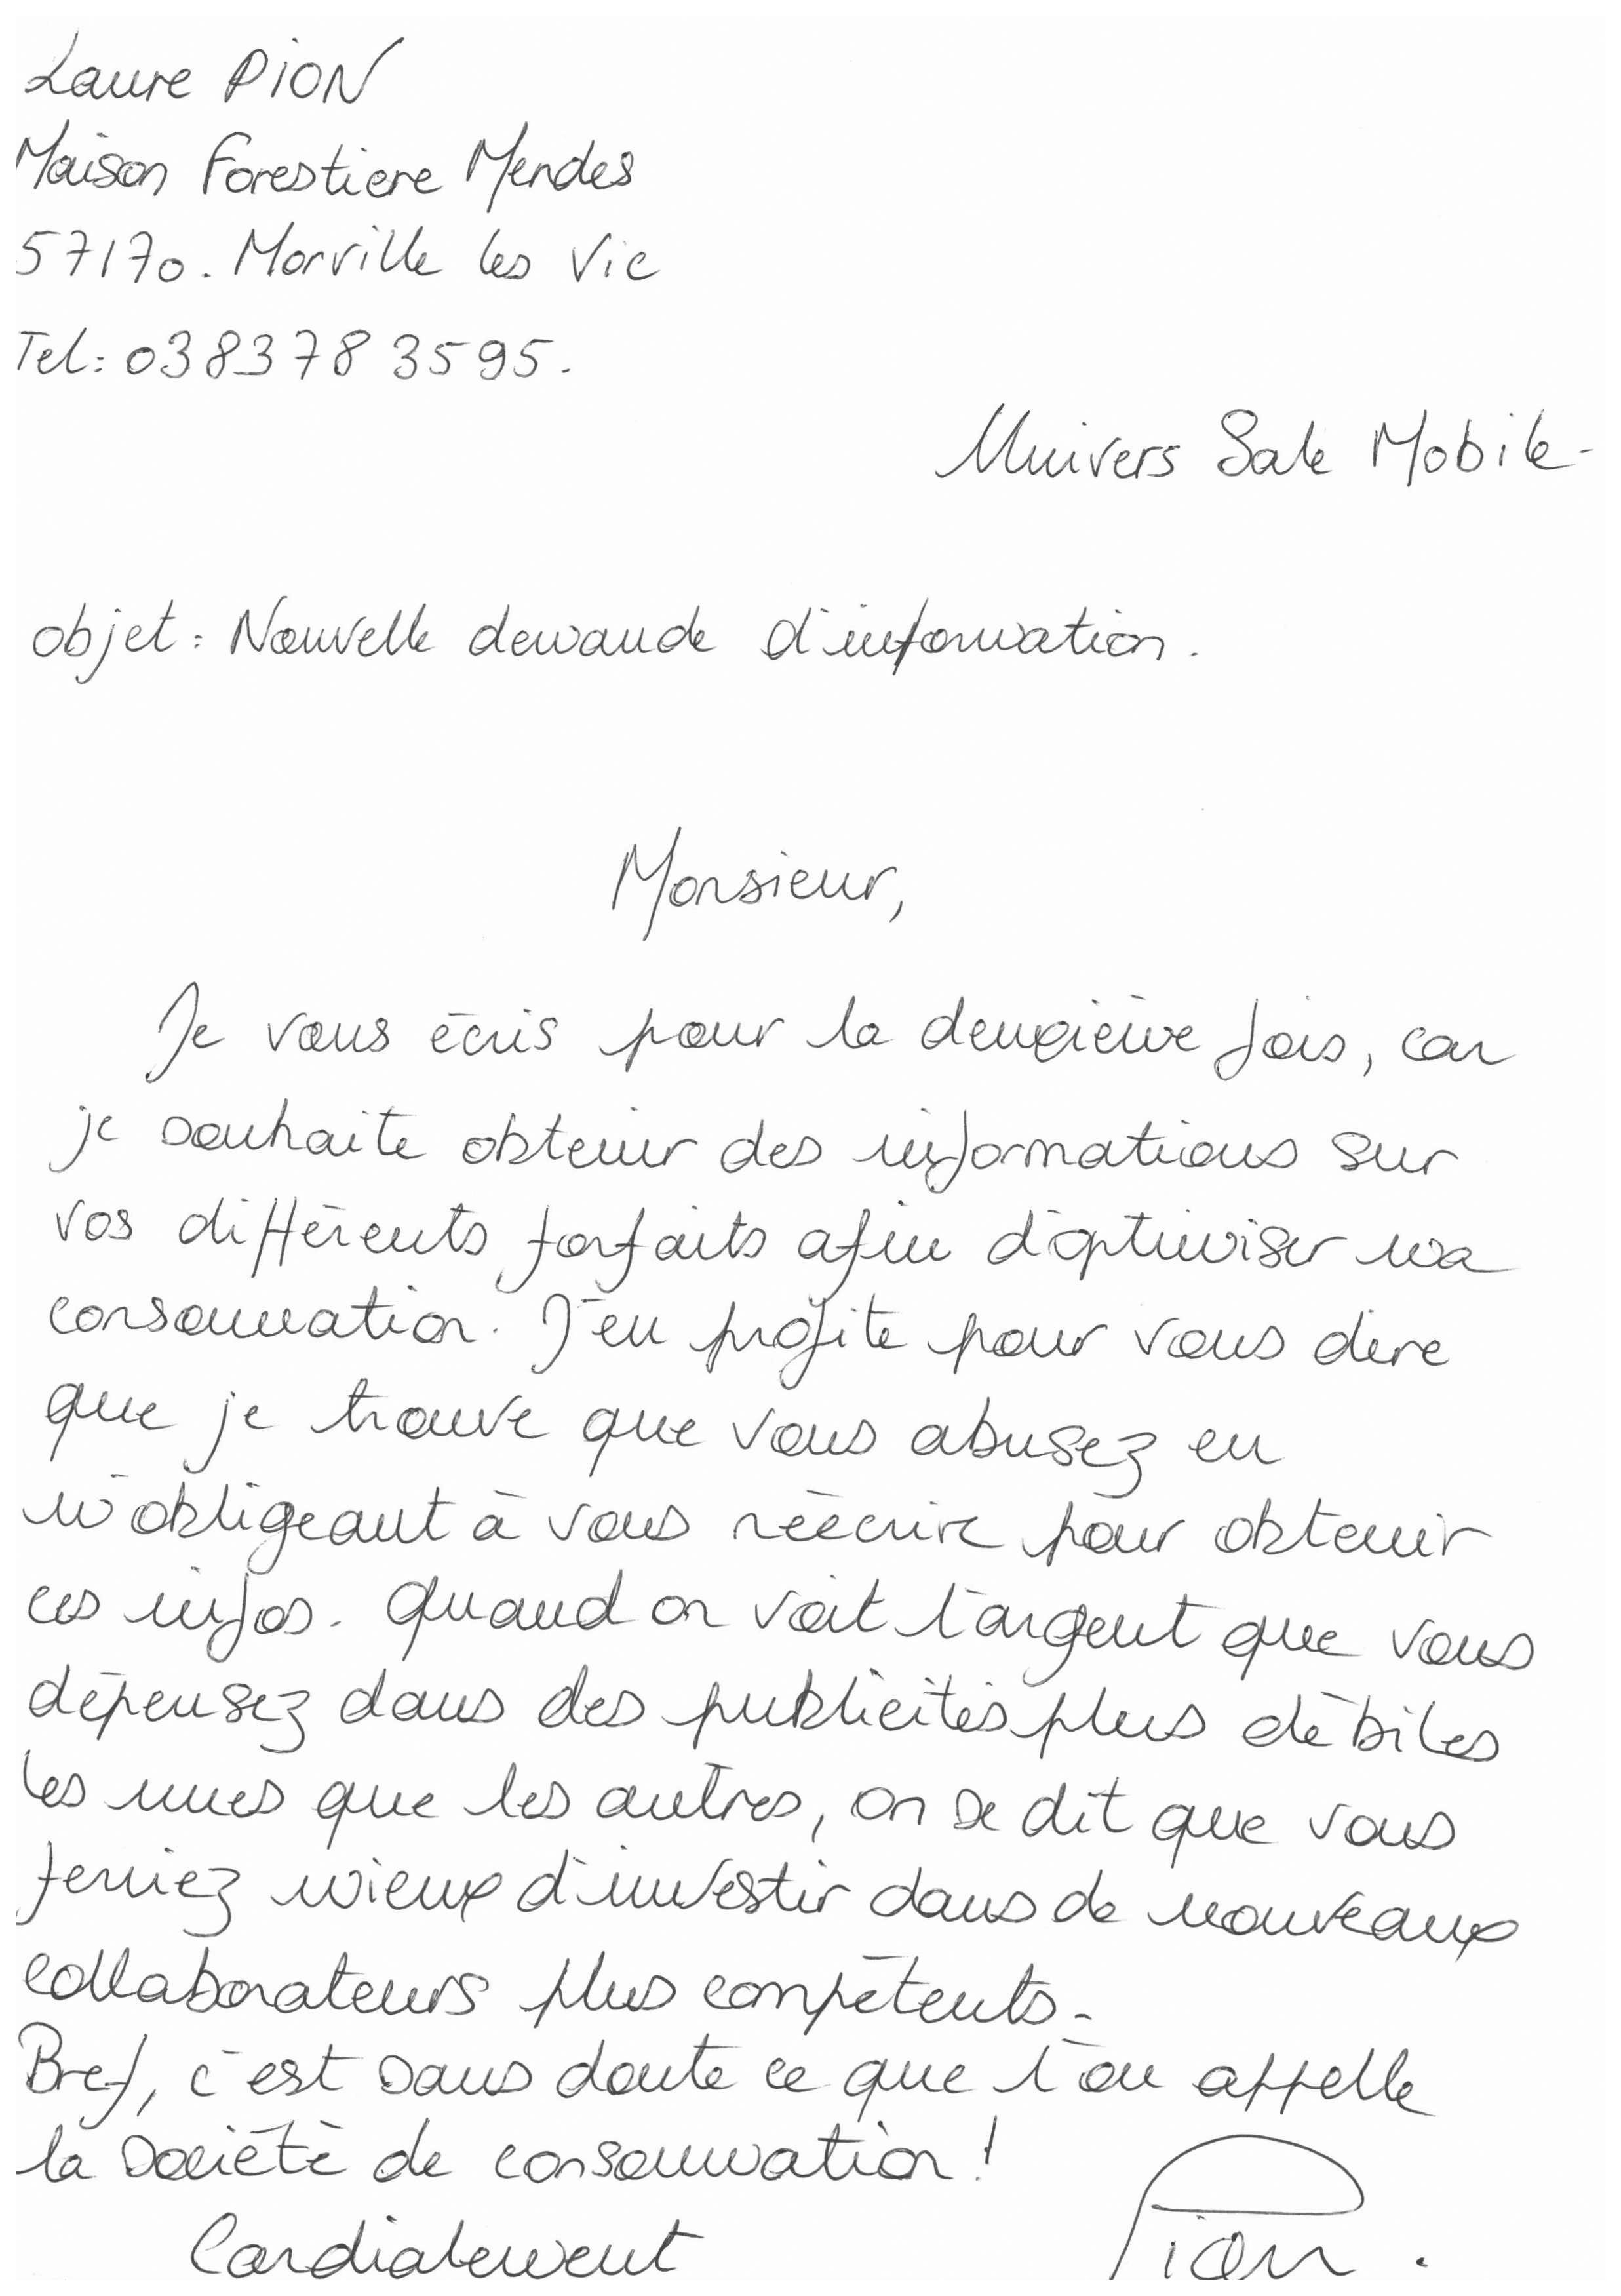 Laure PION
Maison Forestiere Mendes
57170. Morville les Vic
Tel: 0383783595.
Univers Sale Mobile-
objet: Nouvelle demande d'information.
Monsieur,
Je vous écris pour la deuxième fois, car
je souhaite obtenir des informations sur
vos différents forfaits afin d'optimiser ma
consommation. J'en profite pour vous dire
que je trouve que vous abusez en
m'obligeant à vous réécrire pour obtenir
ces infos. Quand on voit l'argent que vous
dépensez dans des publicités plus débiles
les unes que les autres, on se dit que vous
feriez mieux d'investir dans de nouveaux
collaborateurs plus compétents.
Bref, c'est sans doute ce que l'on appelle
la société de consommation!
Cordialement
Pion.